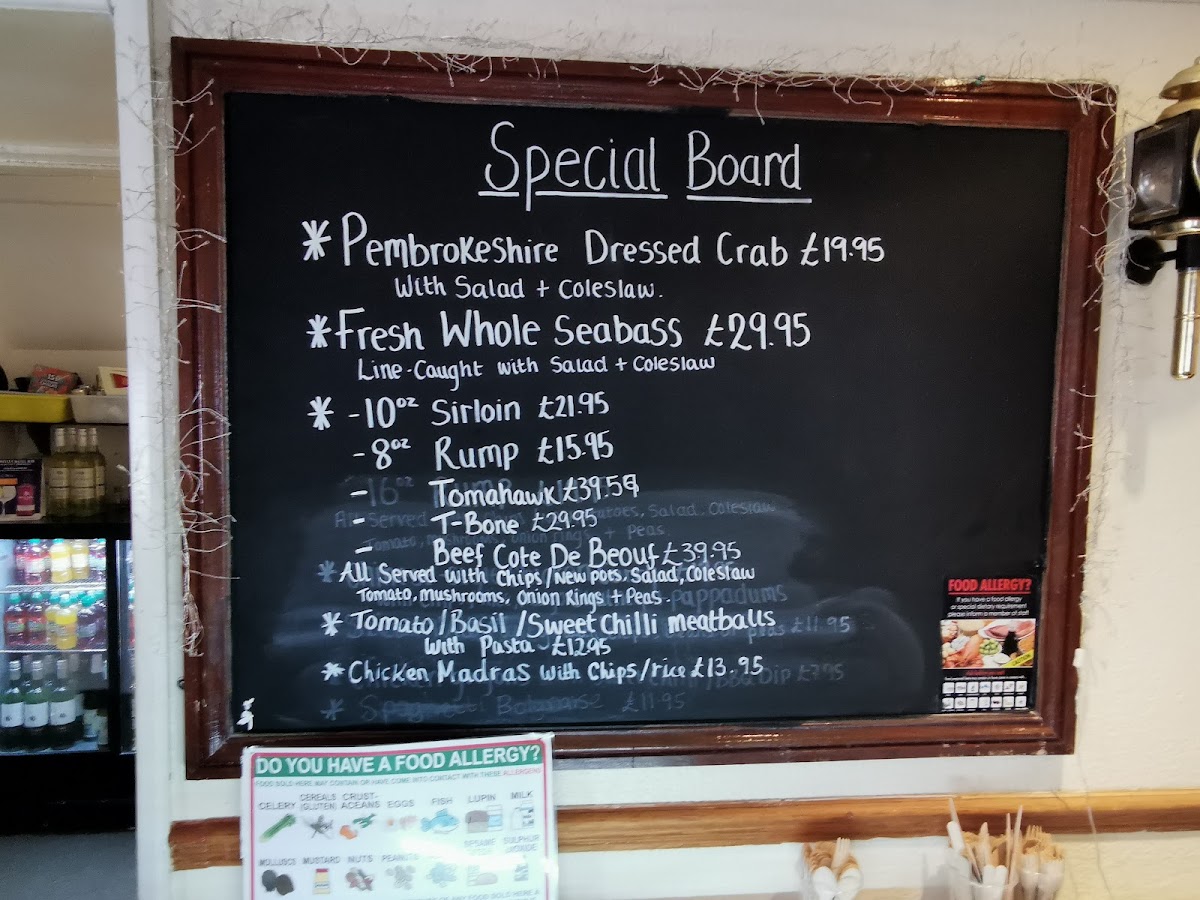 Special Board
* Pembrokeshire Dressed Crab £19.95
With Salad + Coleslaw.
* Fresh Whole Seabass £29.95
Line-Caught with Salad + Coleslaw
* -10oz Sirloin £21.95
- 8oz Rump £15.95
- Tomahawk £39.59
- T-Bone £29.95
- Beef Cote De Beouf £39.95
* All Served with Chips/New Pots, Salad, Coleslaw
Tomato, mushrooms, Onion Rings + Peas.
* Tomato/Basil/Sweet Chilli meatballs
with Pasta - £12.95
* Chicken Madras with Chips/rice £13.95
* Bolognaise £11.95
FOOD ALLERGY?
If you have a food allergy
or special dietary requirement
please inform a member of staff
DO YOU HAVE A FOOD ALLERGY?
FOOD SOLD HERE MAY CONTAIN OR HAVE COME INTO CONTACT WITH THESE ALLERGENS
CELERY CEREALS (GLUTEN) CRUST-ACEANS EGGS FISH LUPIN MILK
MOLLUSCS MUSTARD NUTS PEANUTS SESAME SULPHUR DIOXIDE